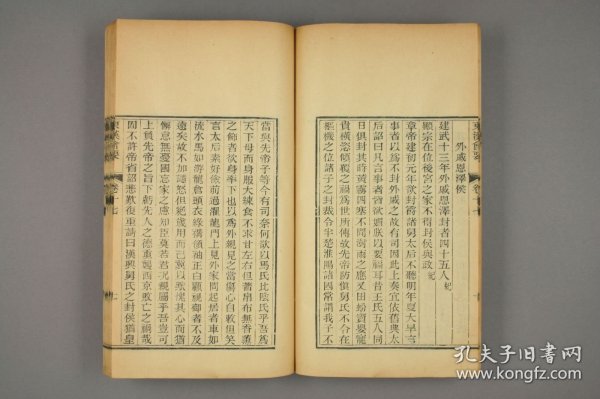 外戚恩澤侯
建武十三年外戚恩澤封者四十五人紀
顯宗在位後宮之家不得封侯與政紀
章帝建初元年欲封爵諸舅太后不聽明年夏大旱言
事者以為不封外戚之故有司因此上奏宜依舊典太
后詔曰凡言事者皆欲媚朕以要福耳昔王氏五人同
日俱封其時黃霧四塞不聞澍雨之應又田蚡竇嬰寵
貴橫恣傾覆之禍為世所傳故先帝防慎舅氏不令在
樞機之位諸子之封裁令半楚淮陽諸國常謂我子不
當與先帝子等今有司奈何欲以馬氏比陰氏乎吾為
天下母而身服大練食不求甘左右但著帛布無香薰
之飾者欲身率下也以為外親見之當傷心自敕但笑
言太后素好儉前過濯龍門上見外家問起居者車如
流水馬如游龍倉頭衣綠褠領袖正白顧視御者不及
遠矣故不加譴怒但絕歲用而已冀以默愧其心而猶
懈怠無憂國忘家之慮知臣莫若君況親屬乎吾豈可
上負先帝之旨下虧先人之德重襲西京敗亡之禍哉
固不許帝省詔悲歎復重請曰漢興舅氏之封侯猶皇
孔夫子旧书网
www.kongfz.com